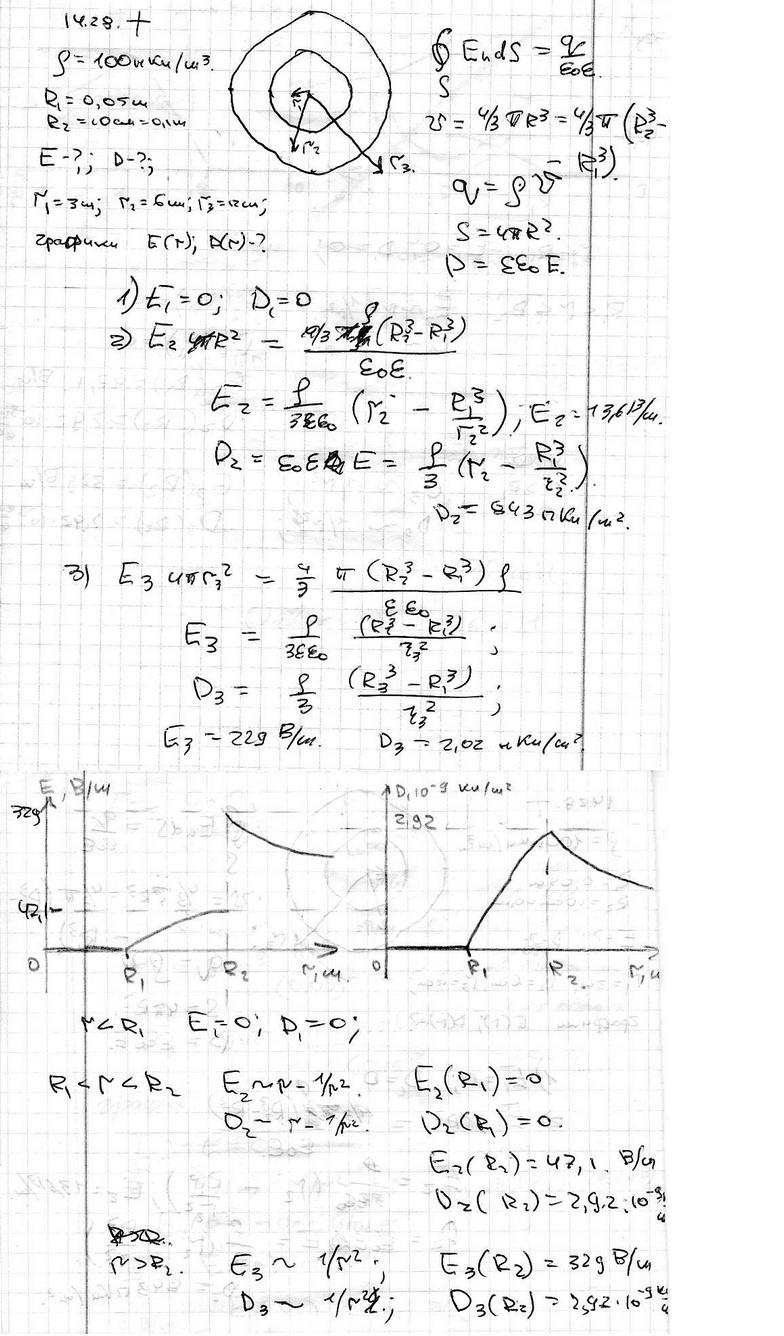 14.28. +
ρ = 100 нКл/м³.
R₁ = 0,05 м
R₂ = 10 см = 0,1 м
E - ?; D - ?;
r₁ = 3 м; r₂ = 6 м; r₃ = 12 м;
графики E(r); D(r) - ?
r₁
r₂
r₃
∮ EndS = q/ε₀ε.
S
v = 4/3 πR³ = 4/3 π (R₂³ -
- R₁³)
q = ρ v
S = 4πR².
D = εε₀ E.
1) E₁ = 0; D₁ = 0
2) E₂ 4πR² = 4/3 π ρ (R₂³ - R₁³) / ε₀ε.
E₂ = ρ/3εε₀ (r₂ - R₁³/r₂²); E₂ = 13,6 В/м.
D₂ = ε₀ε E = ρ/3 (r₂ - R₁³/r₂²).
D₂ = 843 пКл/м².
3) E₃ 4πr₃² = 4/3 π (R₂³ - R₁³) ρ / εε₀
E₃ = ρ/3εε₀ (R₂³ - R₁³)/r₃² ;
D₃ = ρ/3 (R₃³ - R₁³)/r₃² ;
E₃ = 229 В/м. D₃ = 2,02 нКл/м².
E, В/м
329
47,1
0
R₁
R₂
r, м.
D, 10⁻⁹ Кл/м²
2,92
0
R₁
R₂
r, м
r < R₁ E₁ = 0; D₁ = 0;
R₁ < r < R₂ E₂ ~ r - 1/r². E₂(R₁) = 0
D₂ ~ r - 1/r². D₂(R₁) = 0.
E₂(R₂) = 47,1. В/м
D₂(R₂) = 2,92·10⁻⁹
r > R₂. E₃ ~ 1/r²; E₃(R₂) = 329 В/м
D₃ ~ 1/r²; D₃(R₂) = 2,92·10⁻⁹ Кл/м